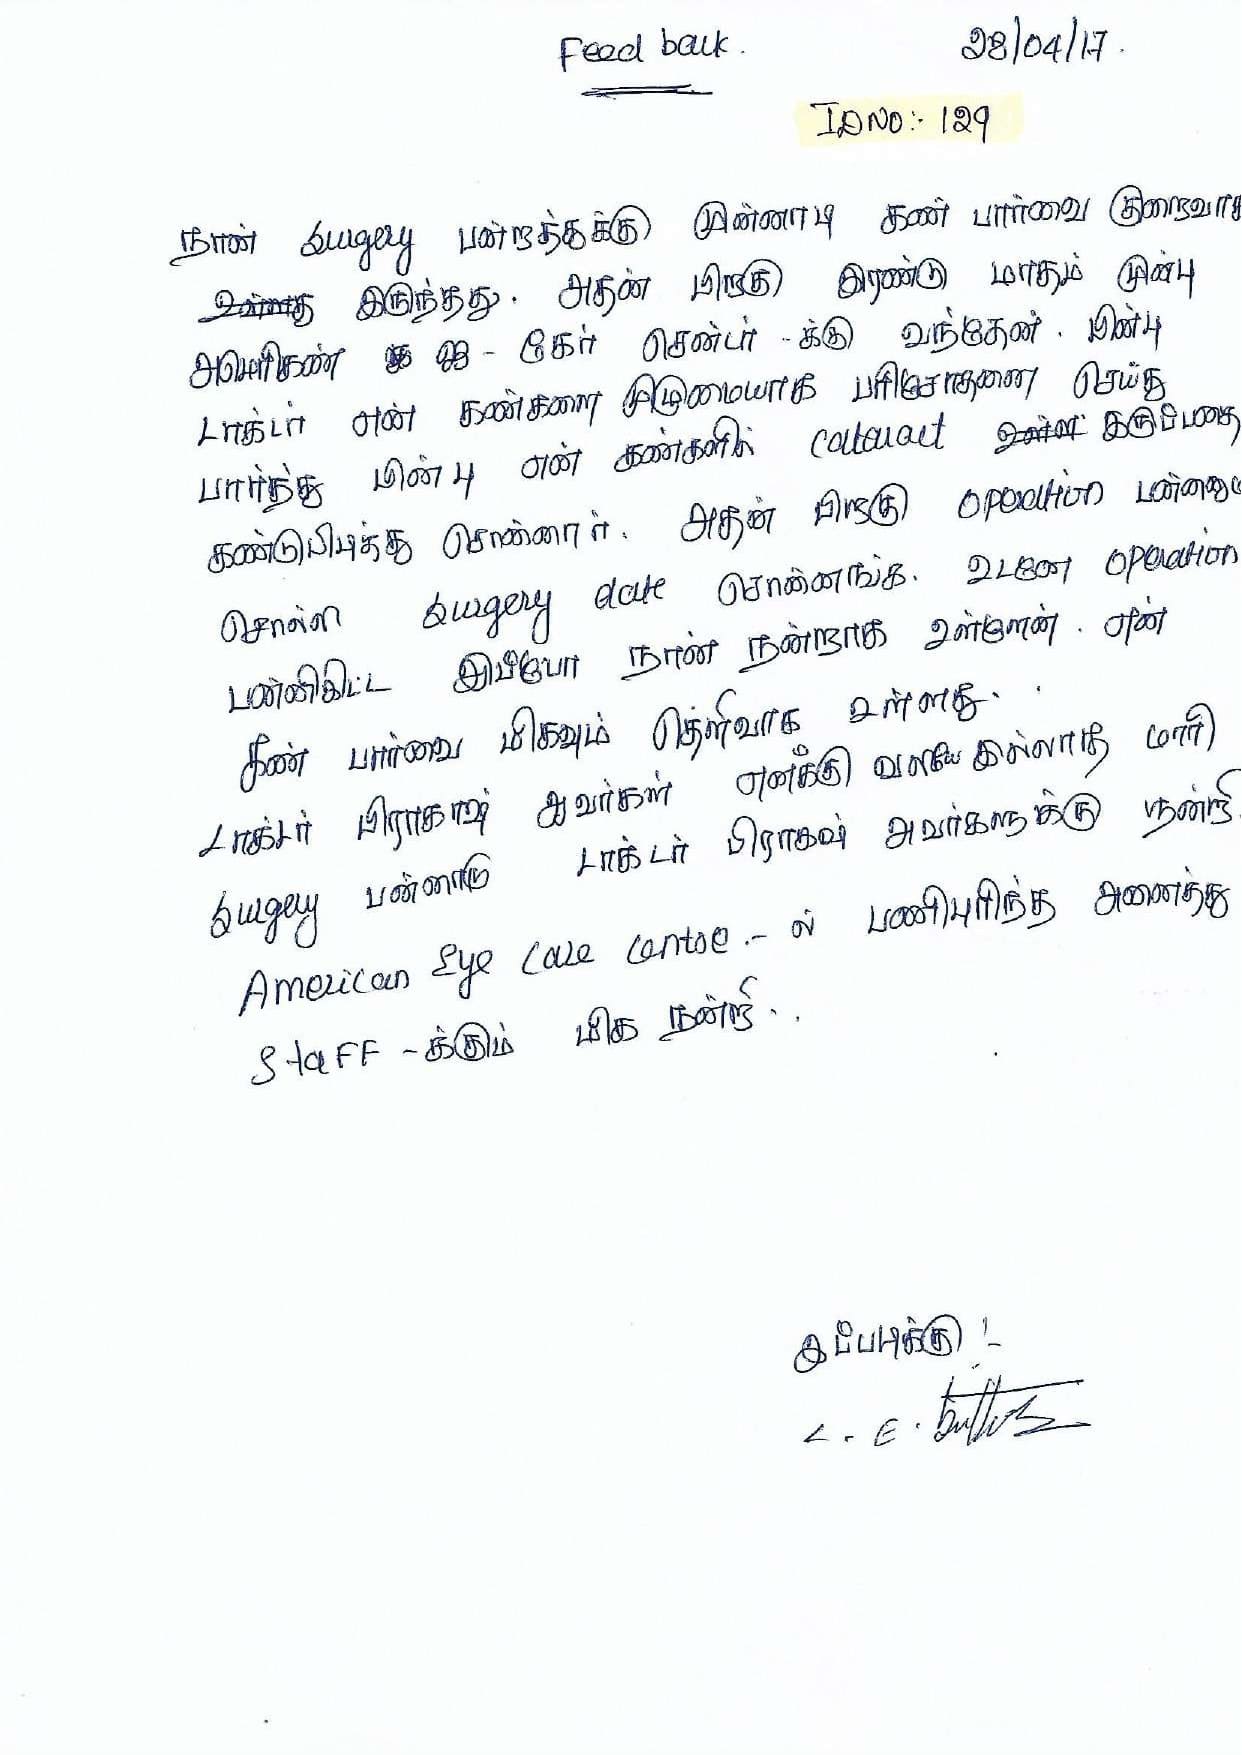 Feed back.
28/04/17.
ID NO:- 129
நான் surgery பன்றத்தக்கு முன்னாடி கண் பார்வை குறைவாக
இருந்தது. அதன் பிறகு இரண்டு மாதம் முன்பு
அமெரிகண் ஐ - கேர் சென்டர் - க்கு வந்தேன். பின்பு
டாக்டர் என் கண்களை முழுமையாக பரிசோதனை செய்து
பார்த்து பின்பு என் கண்களில் cataract இருப்பதை
கண்டுபிடித்து சொன்னார். அதன் பிறகு operation பண்ணனும்
சொல்லி surgery date சொன்னாங்க. உடனே operation
பண்ணிகிட்ட இப்போ நான் நன்றாக உள்ளேன். என்
கண் பார்வை மிகவும் தெளிவாக உள்ளது..
டாக்டர் பிராகாஷ் அவர்கள் எனக்கு வலியே இல்லாத மாரி
surgery பண்னாரு டாக்டர் பிராகஷ் அவர்களுக்கு நன்றி.
American Eye Care Centre - ல் பணிபுரிந்த அனைத்து
Staff - க்கும் மிக நன்றி..
இப்படிக்கு!
L. E.